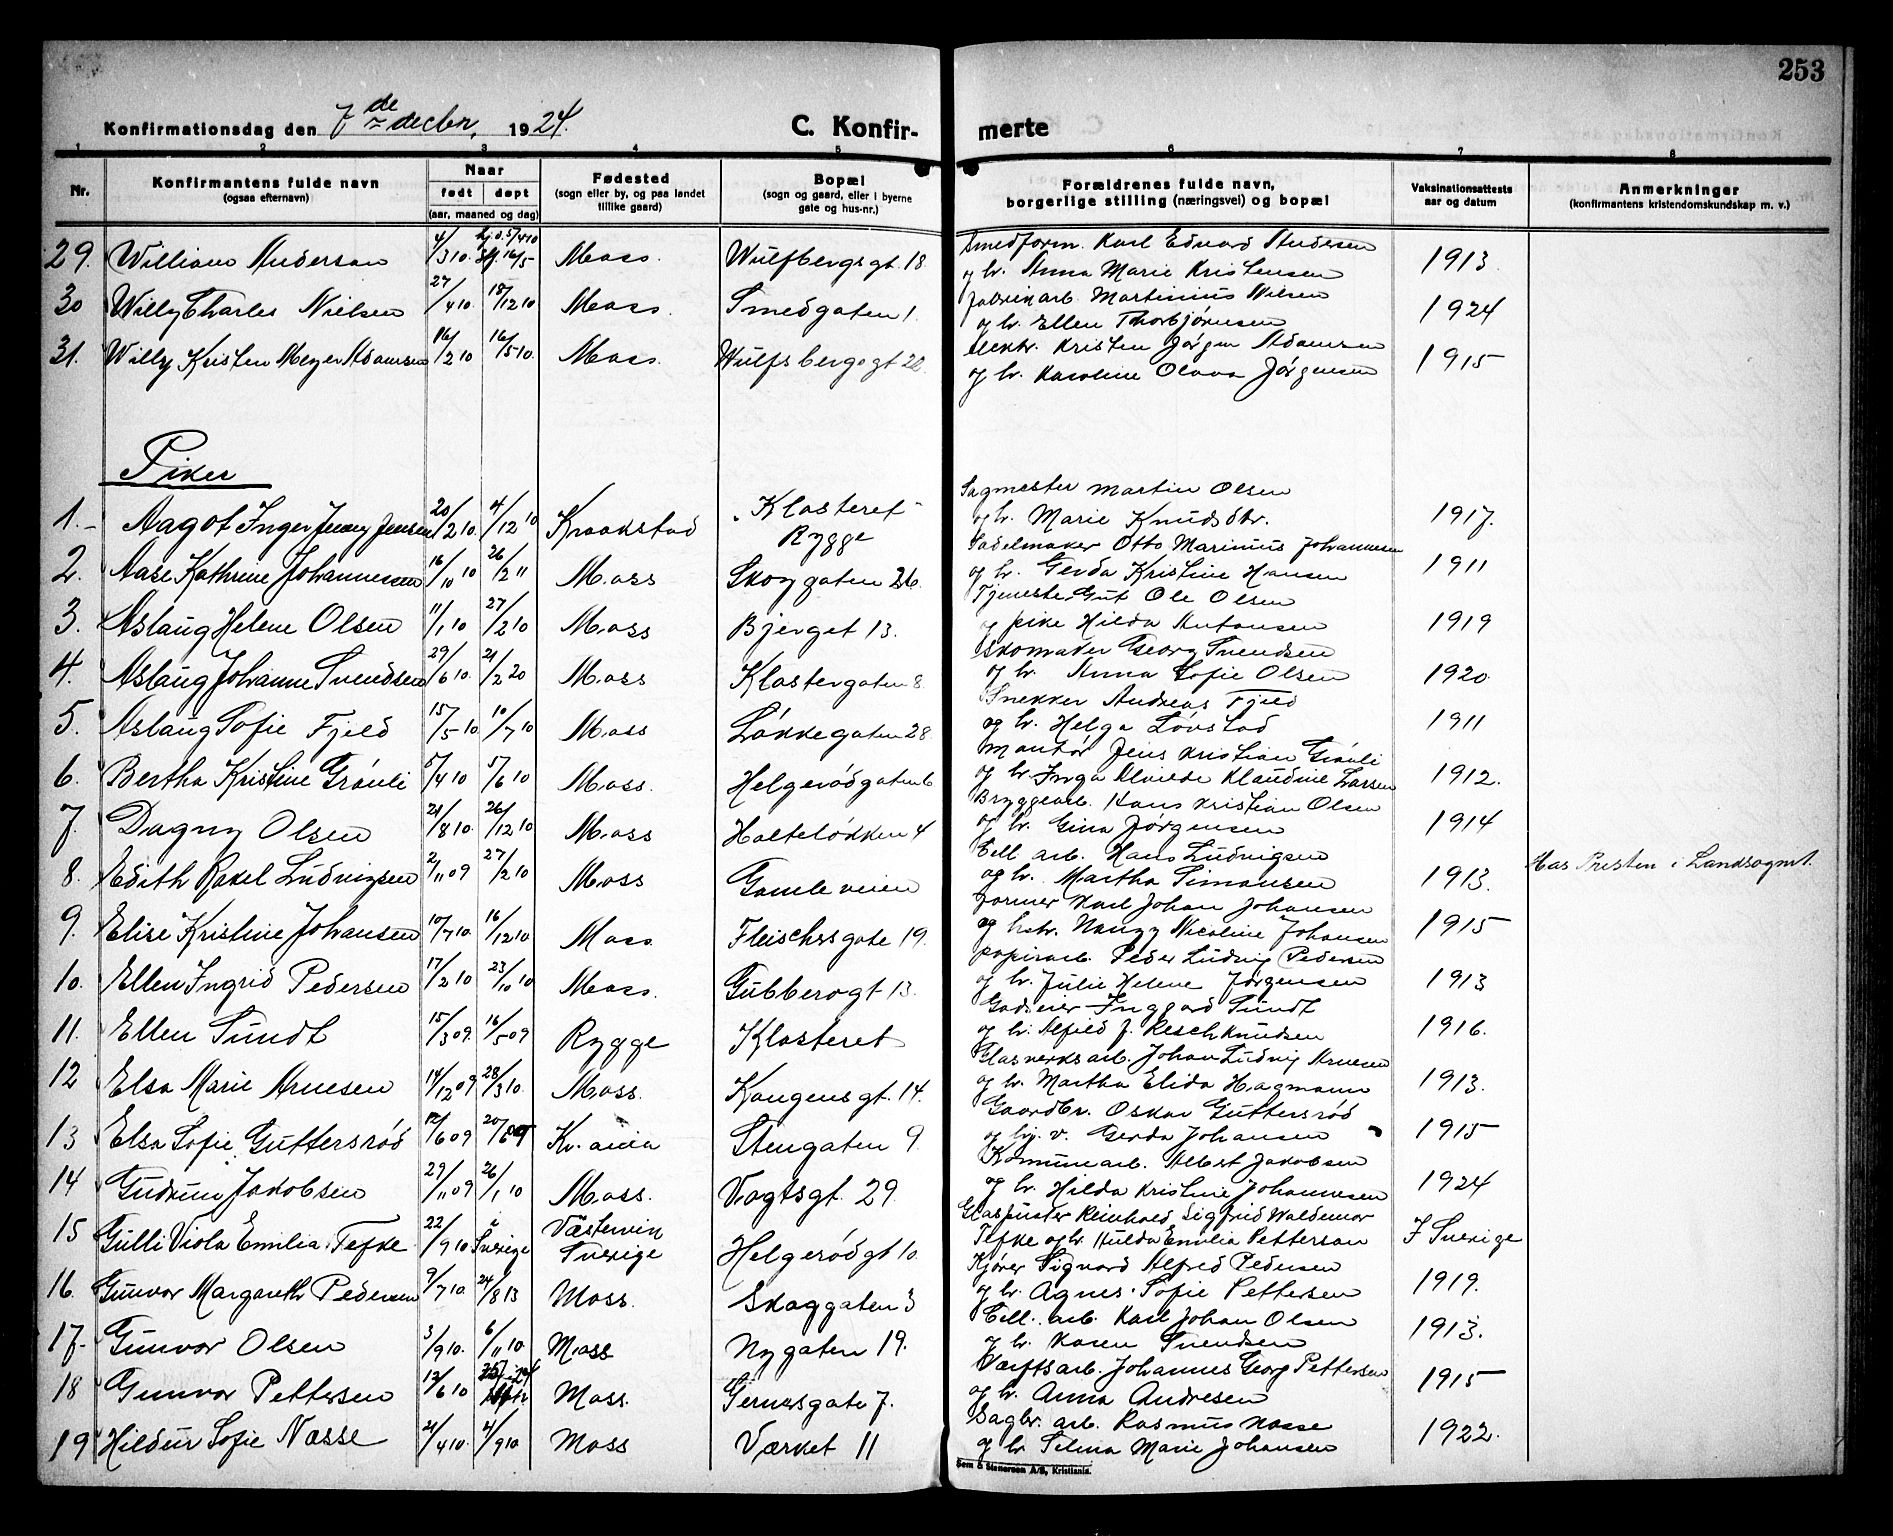 253
Konfirmationsdag den 7de decbr, 1924.
C. Konfirmerte
1 2 3 4 5 6 7 8
Nr. Konfirmantens fulde navn (ogsaa efternavn) Naar født døpt (aar, maaned og dag) Fødested (sogn eller by, og paa landet tillike gaard) Bopæl (sogn og gaard, eller i byerne gate og hus-nr.) Forældrenes fulde navn, borgerlige stilling (næringsvei) og bopæl Vaksinationsattests aar og datum Anmerkninger (konfirmantens kristendomskundskap m. v.)
29. William Andersen 4/3 10. Moss. Wulfbergsgt. 18. Smedform. Karl Edvard Andersen 1913.
og hr. Anna Marie Kristensen
30 Willy Charles Nielsen 27/4 10. 18/12 10 Moss. Smedgaten 1. Fabrikarb. Martinius Nilsen 1924
og hr. Ellen Thorbjørnsen
31. Willy Kristen Meyer Adamsen 16/2 10 16/5 10. Moss. Wulfsbergsgt 22. Elektr. Kristen Jørgen Adamsen 1915
og hr. Karoline Olava Jørgensen
Piker
1. Aagot Inger Jenny Jensen 20/2 10. 4/12 10 Kraakstad Klosteret Rygge Sagmester Martin Olsen 1917.
og hr. Marie Knudsdtr.
2. Aase Kathrine Johannessen 16/10 10 26/2 11 Moss Skoggaten 26. Sadelmaker Otto Marinius Johannessen 1911
og hr. Gerda Kristine Hansen
3. Aslaug Helene Olsen 11/1 10 27/2 10 Moss Bjerget 13. Tjeneste Gut Ole Olsen 1919
og pike Hilda Antonsen
4. Aslaug Johanne Svendsen 29/6 10. 21/2 20 Moss Klostergaten 8. Skomaker Georg Svendsen 1920
og hr. Anna Sofie Olsen
5. Aslaug Sofie Fjeld 15/5 10. 10/7 10 Moss Løkkegaten 28 Snekker Andreas Fjeld 1911
og hr. Helga Løvstad
6. Bertha Kristine Grønli 5/4 10 5/6 10 Moss. Helgerødgaten 6 Montør Jens Kristian Grønli 1912.
og hr. Inga Alvilde Klaudine Larsen
7. Dagny Olsen 21/8 10. 26/12 10 MossHolteløkken 4 Bryggearb. Hans Kristian Olsen 1914
og hr. Gina Jørgensen
8. Edith Rakel Ludvigsen 2/11 09 27/2 10 Moss Gamleveien Cell. arb. Hans Ludvigsen 1913. Hos Presten i Landsognet.
og hr. Martha Simonsen
9. Elise Kristine Johansen 10/7 10. 16/12 10 Moss Fleischersgate 19. Former Karl Johan Johansen 1915
og hstr. Nanny Nicoline Johansen
10. Ellen Ingrid Pedersen 17/2 10 23/10 10 Moss. Gubberogt 13. papirarb. Peder Ludvig Pedersen 1913
og hr. Julie Helene Jørgensen
11. Ellen Sundt 15/3 09. 16/5 09 Rygge Klosteret Godseier Inggard Sundt 1916.
og hr. Alfild J. Resch Knudsen
12 Elsa Marie Arnesen 14/12 09 28/3 10. Moss. Kongensgt. 14. Glasverksarb. Johan Ludvig Arnesen 1913.
og hr. Martha Elida Hagmann
13 Elsa Sofie Guttersrød 12/6 09 Kr.ania Stengaten 9. Gaardbr. Oskar Guttersrød 1915
og hr. v. Gerda Johansen
14 Gudrun Jakobsen 29/11 09 26/1 10 Moss. Vogtsgt. 29. Kommunearb. Albert Jakobsen 1924
og hr. Hilda Kristine Johannesen
15 Gulli Viola Emilia Tefke 22/9 10 i Sverige Västervik Sverige Helgerødgt 10. Glaspuster Reinhold Sigfrid Waldemar I Sverige
Tefke og hr. Hulda Emilia Petterson
16. Gunvor Margareth Pedersen 9/7 10. 24/8 13 Moss. Skoggaten 3 Kjører Sigvard Alfred Pedersen 1919.
og hr. Agnes Sofie Pettersen
17. Gunvor Olsen 3/9 10. 6/11 10 Moss Nygaten 19. Cell. arb. Karl Johan Olsen 1913.
og hr. Karen Svendsen
18 Gunvor Pettersen 12/6 10 Moss. Gernersgate 7. Værftsarb. Johannes Georg Pettersen 1915
og hr. Anna Andresen
19 Hildur Sofie Nasse 21/4 10. 4/9 10 Moss Værket 11 Sagbr. arb. Rasmus Nasse 1922.
og hr Selma Marie Johansen
Sem & Stenersen A/S, Kristiania.